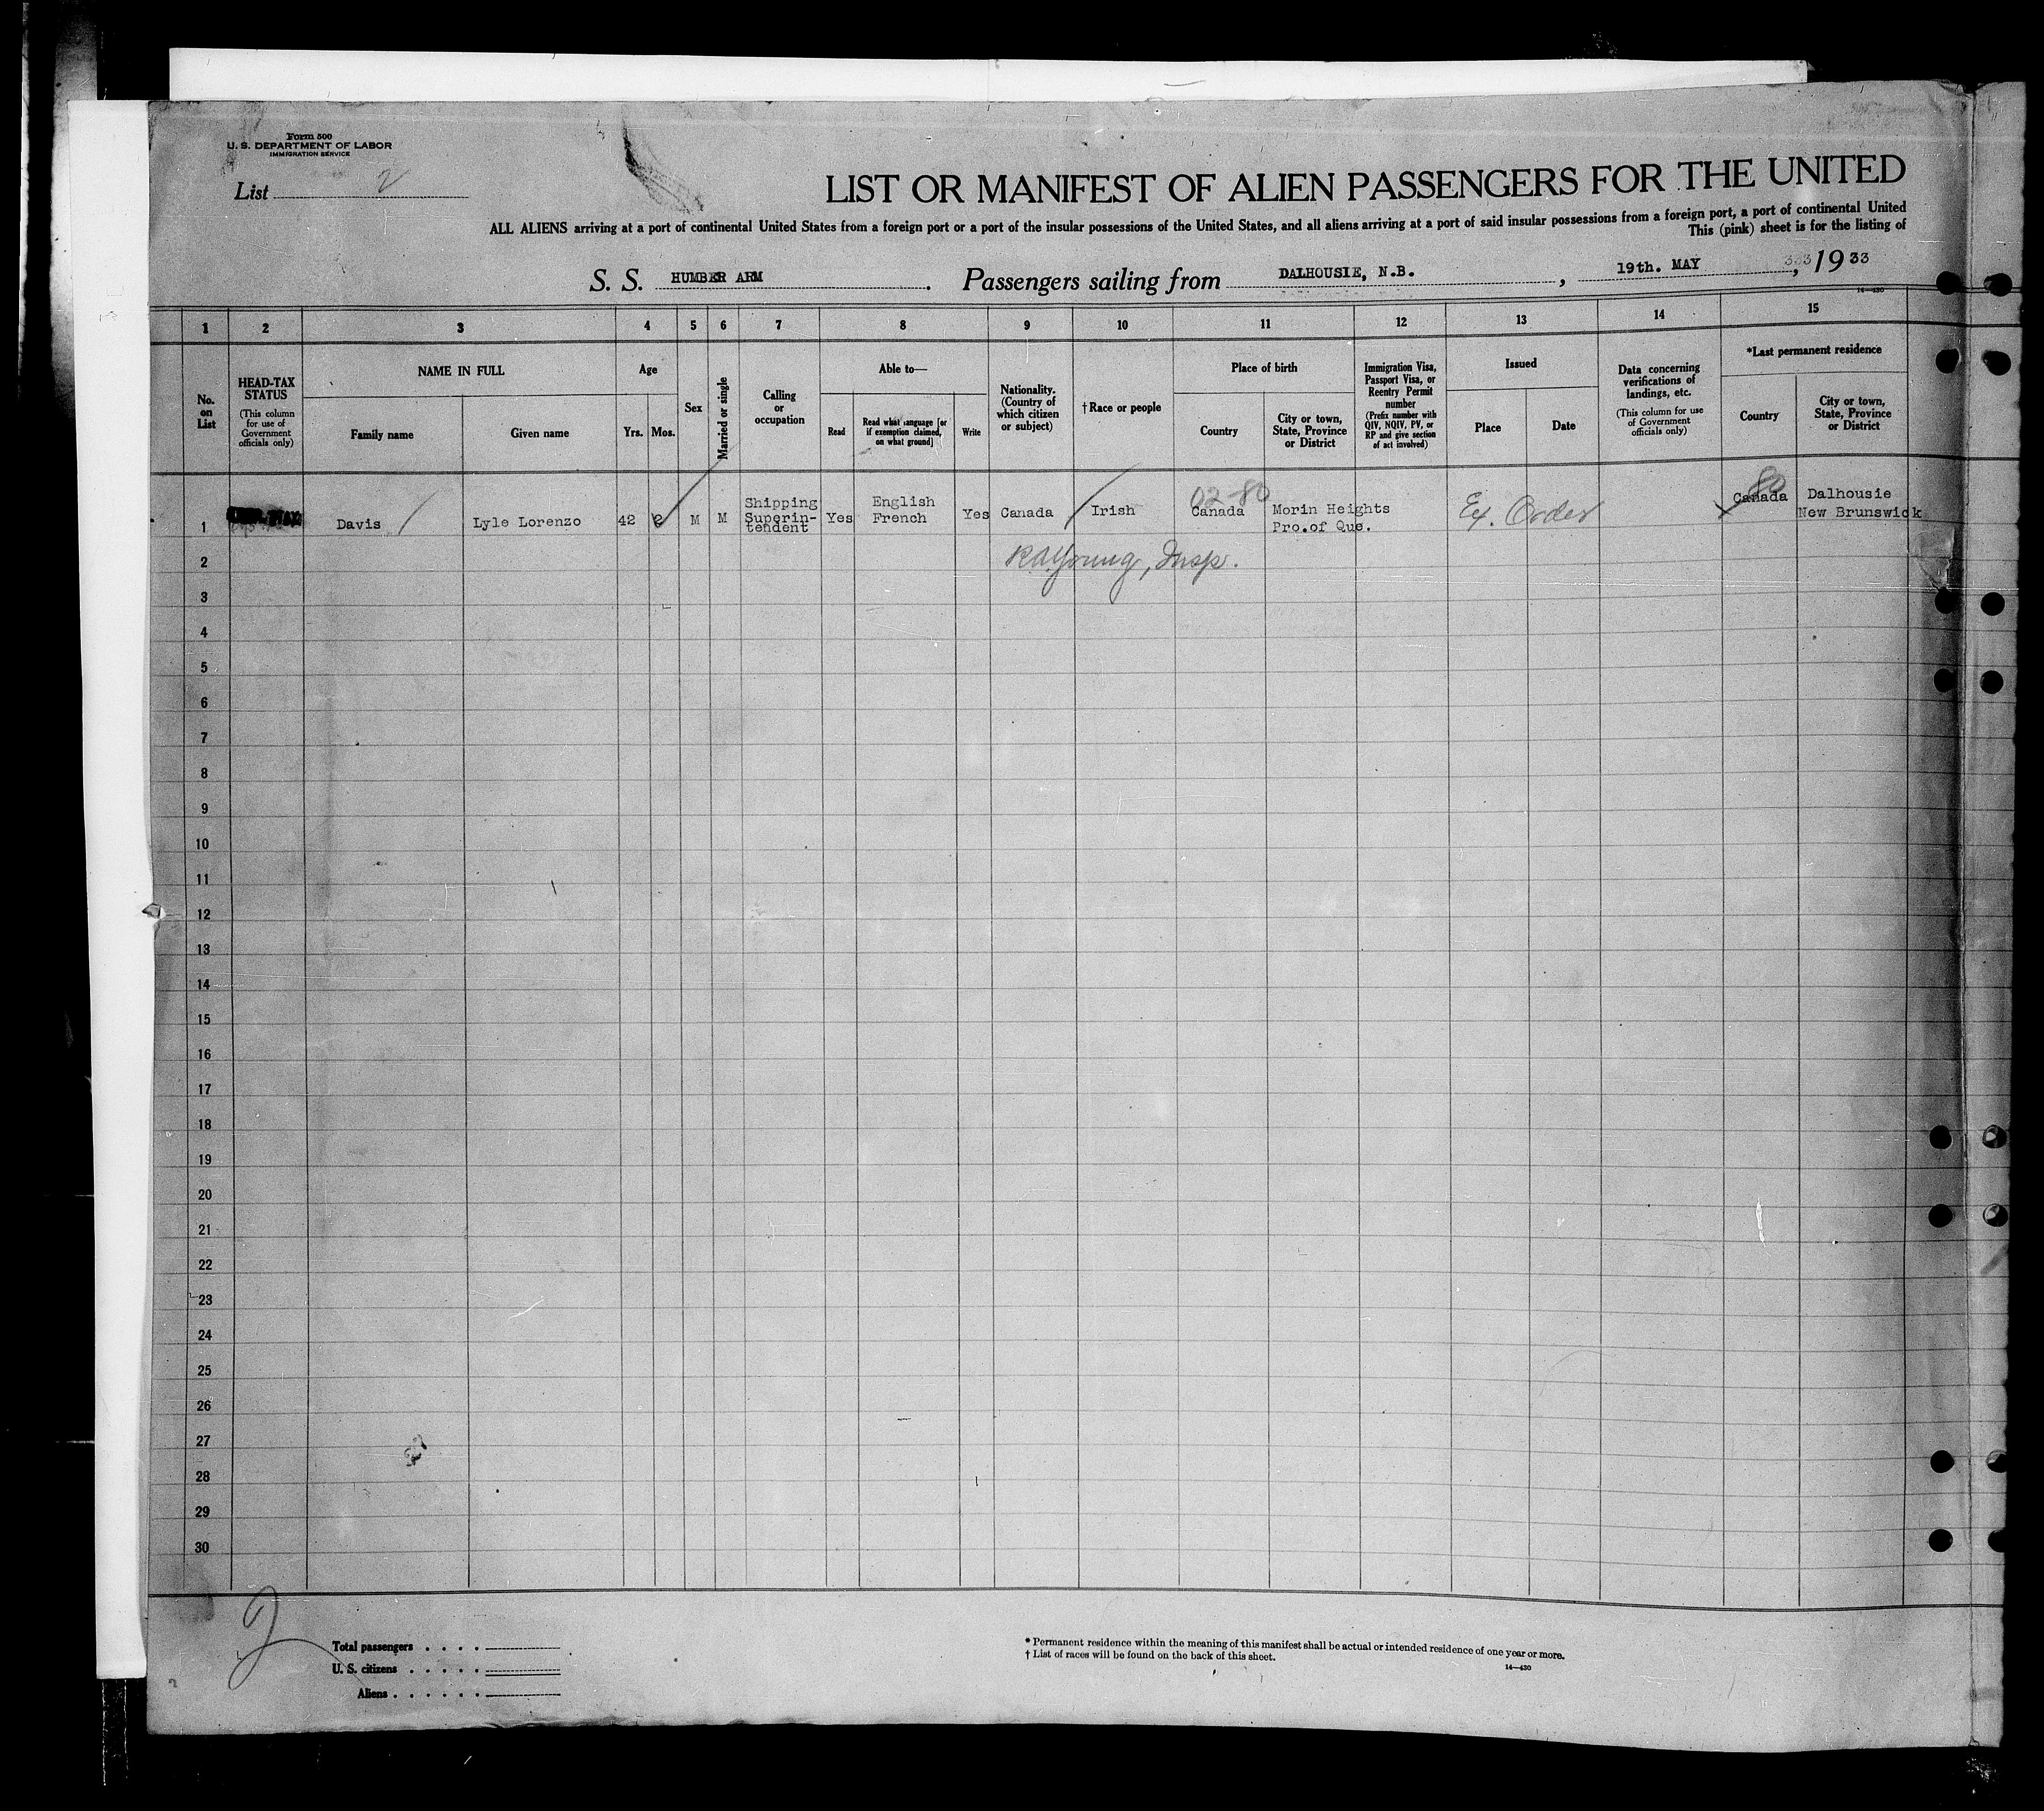 Form 500
U. S. DEPARTMENT OF LABOR
IMMIGRATION SERVICE
List 2
LIST OR MANIFEST OF ALIEN PASSENGERS FOR THE UNITED
ALL ALIENS arriving at a port of continental United States from a foreign port or a port of the insular possessions of the United States, and all aliens arriving at a port of said insular possessions from a foreign port, a port of continental United
This (pink) sheet is for the listing of
S. S. HUMBER ARM. Passengers sailing from DALHOUSIE, N.B., 19th. MAY, 1933
14—430
1 2 3 4 5 6 7 8 9 10 11 12 13 14 15
No. on List
HEAD-TAX STATUS
(This column for use of Government officials only)
NAME IN FULL
Family name
Given name
Age
Yrs.
Mos.
Sex
Married or single
Calling or occupation
Able to—
Read
Read what language [or if exemption claimed, on what ground]
Write
Nationality. (Country of which citizen or subject)
†Race or people
Place of birth
Country
City or town, State, Province or District
Immigration Visa, Passport Visa, or Reentry Permit number
(Prefix number with QIV, NQIV, PV, or RP and give section of act involved)
Issued
Place
Date
Data concerning verifications of landings, etc.
(This column for use of Government officials only)
*Last permanent residence
Country
City or town, State, Province or District
02-80
80
1 Davis Lyle Lorenzo 42 M M Shipping Superin-tendent Yes English French Yes Canada Irish Canada Morin Heights Pro.of Que. Ex. Order Canada Dalhousie New Brunswick
2 RAYoung, Insp.
3
4
5
6
7
8
9
10
11
12
13
14
15
16
17
18
19
20
21
22
23
24
25
26
27
28
29
30
2
Total passengers . . . .
U. S. citizens . . . . .
Aliens . . . . . .
* Permanent residence within the meaning of this manifest shall be actual or intended residence of one year or more.
† List of races will be found on the back of this sheet.
14—430